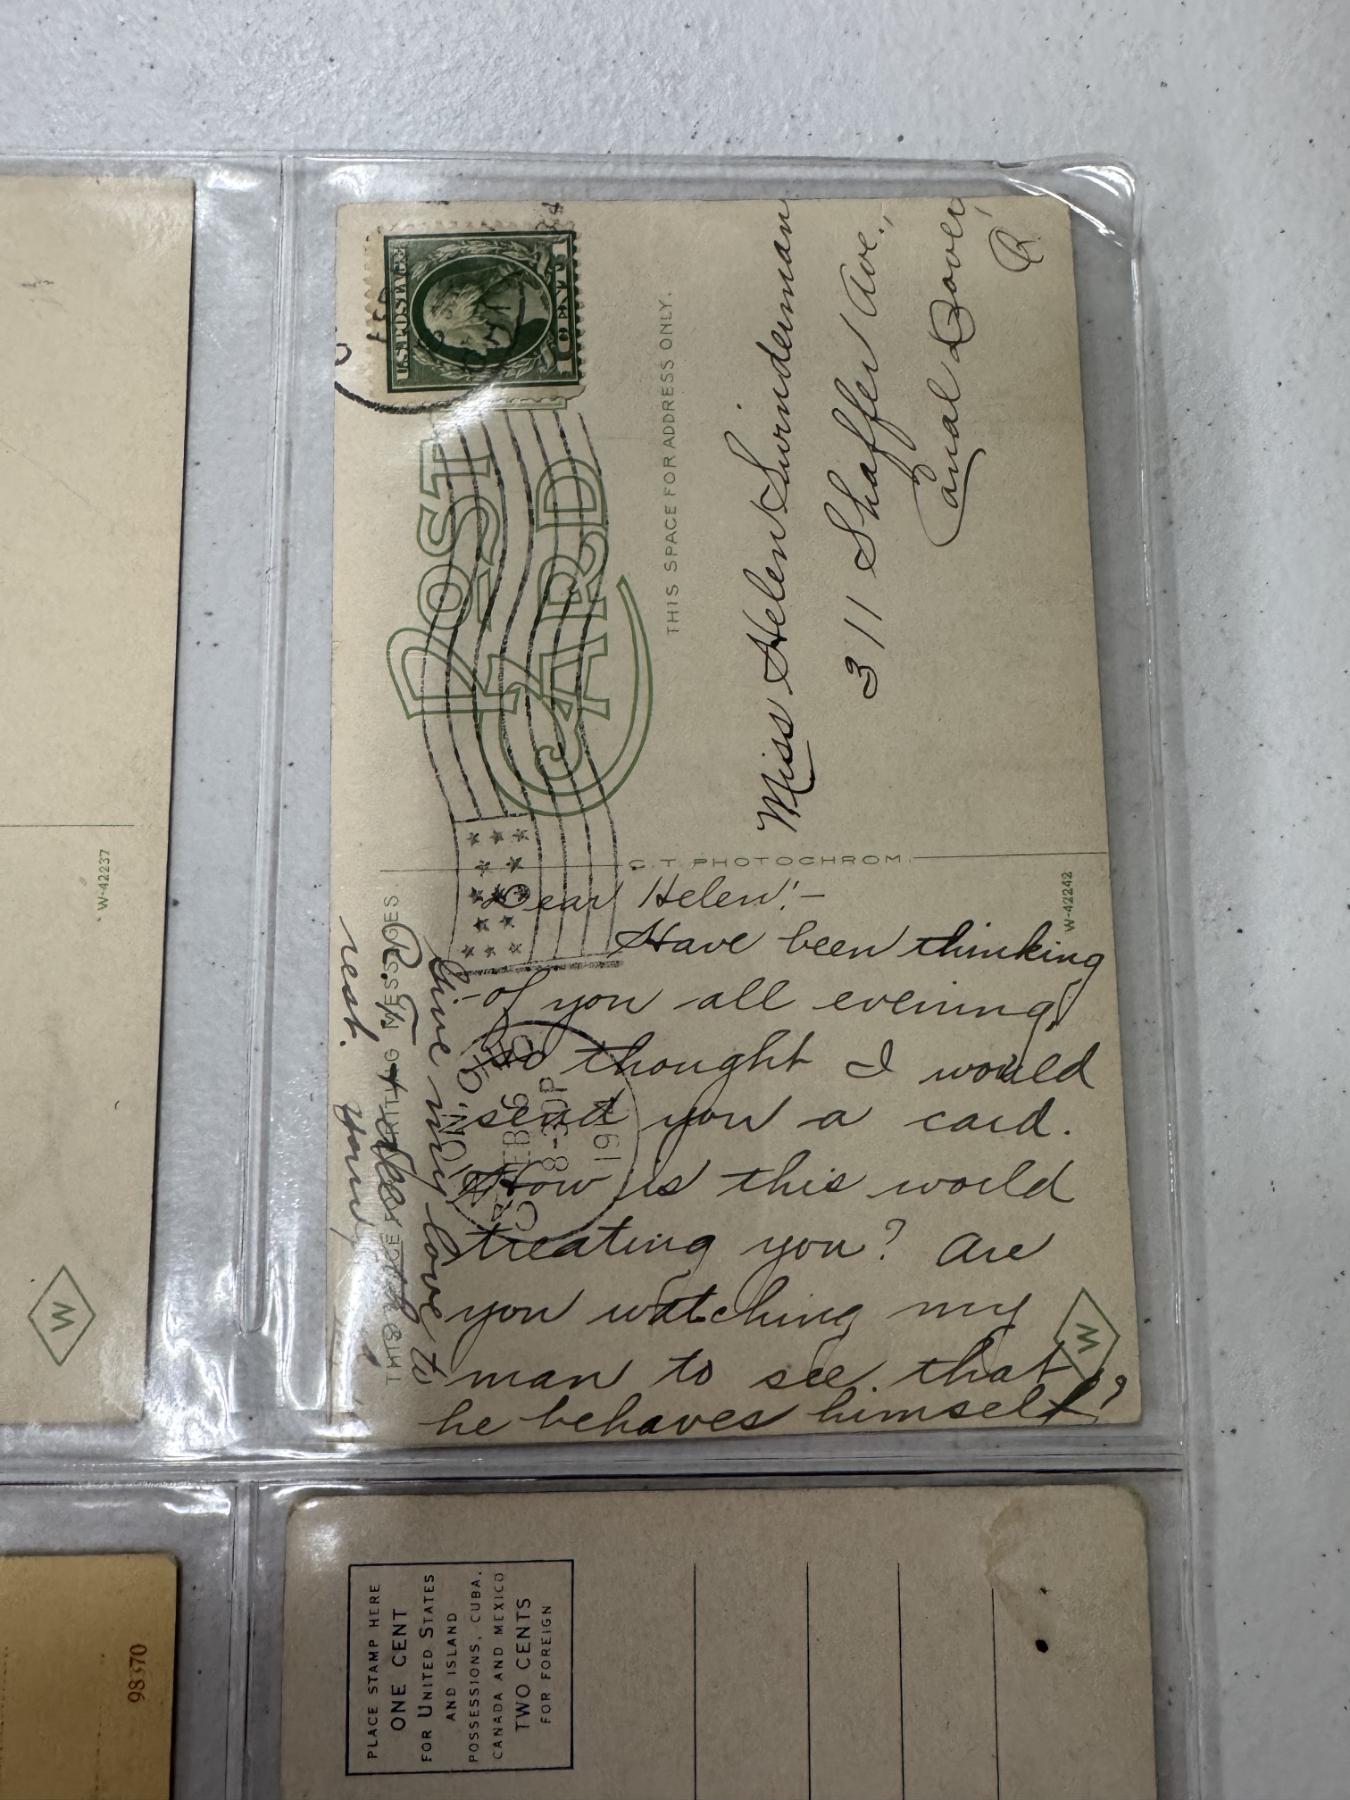 W-42237
W
UNITED STATES POSTAGE
1 CENT 1
POST
CARD
THIS SPACE FOR ADDRESS ONLY.
Miss Helen
311 Shaffer Ave.,
Canal Dover,
C.T. PHOTOCHROM.
W-42242
W
FEB 6
8-30P
Dear Helen:-
Have been thinking
of you all evening,
so thought I would
send you a card.
How is this world
treating you? Are
you watching my
man to see that
he behaves himself?
Give my love to
rest.
THIS SPACE WRITING MESSAGES
98370
PLACE STAMP HERE
ONE CENT
FOR UNITED STATES
AND ISLAND
POSSESSIONS, CUBA,
CANADA AND MEXICO
TWO CENTS
FOR FOREIGN